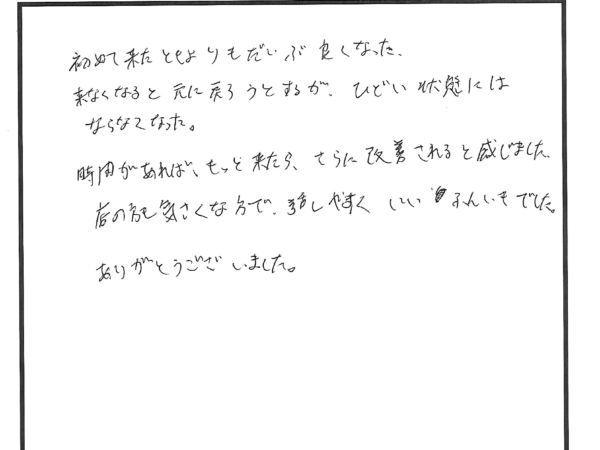 初めて来たときよりもだいぶ良くなった。
来なくなると元に戻ろうとするが、ひどい状態には
ならなくなった。
時間があれば、もっと来たら、さらに改善されると感じました。
店の方も気さくな方で、話しやすく いい ふんいきでした。
ありがとうございました。